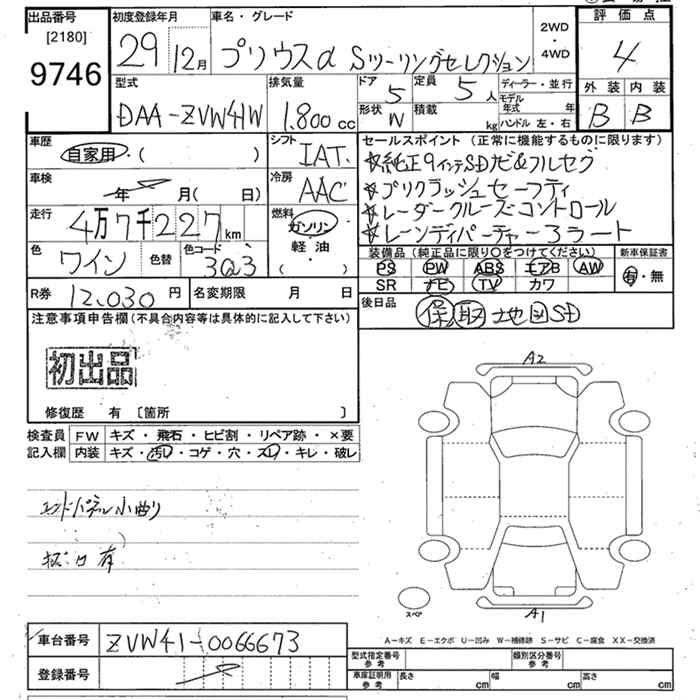 出品番号
[2180]
9746
初度登録年月
29 12月
車名・グレード
プリウスα Sツーリングセレクション
2WD
・
4WD
評価点
4
外装 内装
B B
型式
DAA-ZVW41W
排気量
1.800cc
ドア
5
定員
5人
形状
W
積載
kg
ディーラー・並行
モデル年式 年
ハンドル 左・右
車歴
自家用・( )
シフト
IAT.
車検
年 月( 日)
冷房
AAC
走行
4万7千227km
燃料
ガソリン
軽油・
( )
色
ワイン
色替
色コード
3Q3
セールスポイント (正常に機能するものに限ります)
★純正9インチSDナビ&フルセグ
★プリクラッシュセーフティ
★レーダークルーズコントロール
★レーンディパーチャーアラート
装備品 (純正品に限り○をつけてください)
PS PW ABS エアB AW
SR ナビ TV カワ
新車保証書
有・無
R券 12.030円
名変期限 月 日
後日品
保 取 地図SD
注意事項申告欄(不具合内容等は具体的に記入して下さい)
初出品
修復歴 有 〔箇所 〕
検査員記入欄
FW キズ・飛石・ヒビ割・リペア跡・×要
内装 キズ・汚レ・コゲ・穴・スレ・キレ・破レ
エンドパネル小曲り
A2
A1
スペア
A-キズ E-エクボ U-凹み W-補修跡 S-サビ C-腐食 XX-交換済
車台番号 ZVW41-0066673
登録番号
型式指定番号 参考
類別区分番号 参考
車庫証明用 参考
長さ cm
幅 cm
高さ cm